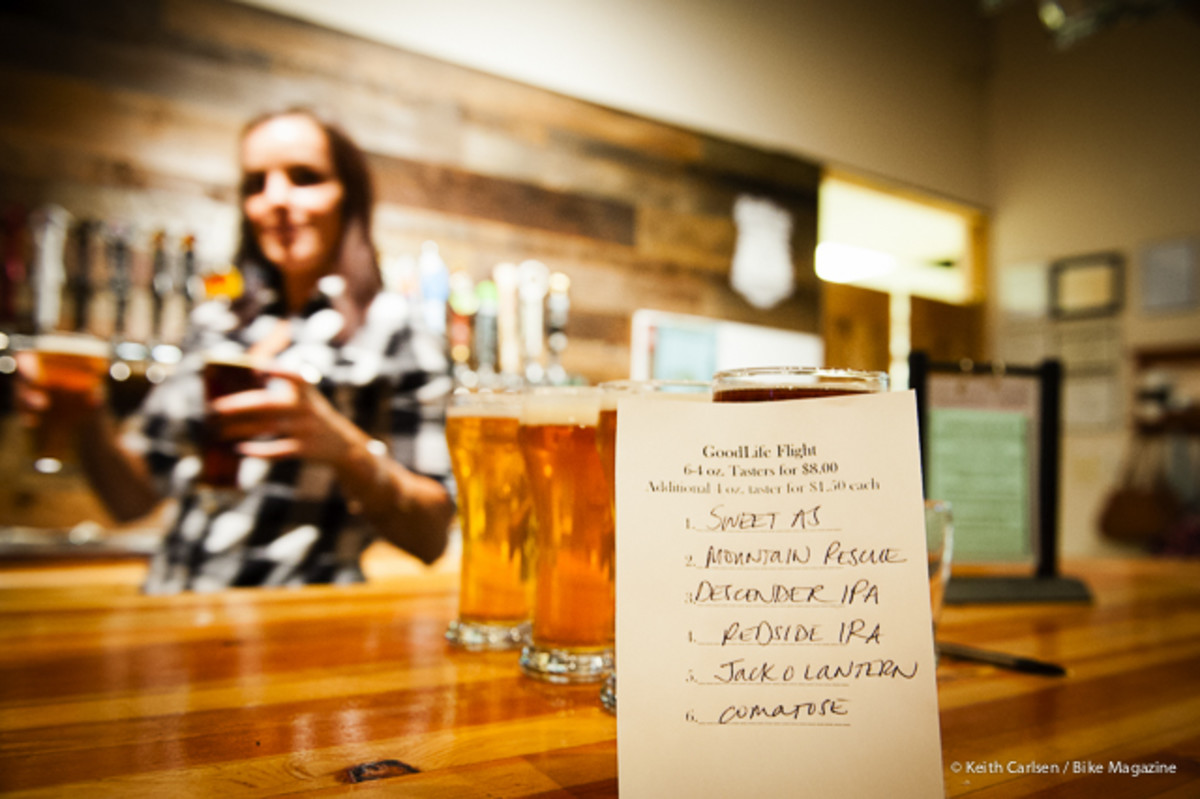 GoodLife Flight
6-4 oz. Tasters for $8.00
Additional 4 oz. taster for $1.50 each
1. SWEET AS
2. MOUNTAIN RESCUE
3. DESCENDER IPA
4. REDSIDE IRA
5. JACK O LANTERN
6. COMATOSE
© Keith Carlsen / Bike Magazine